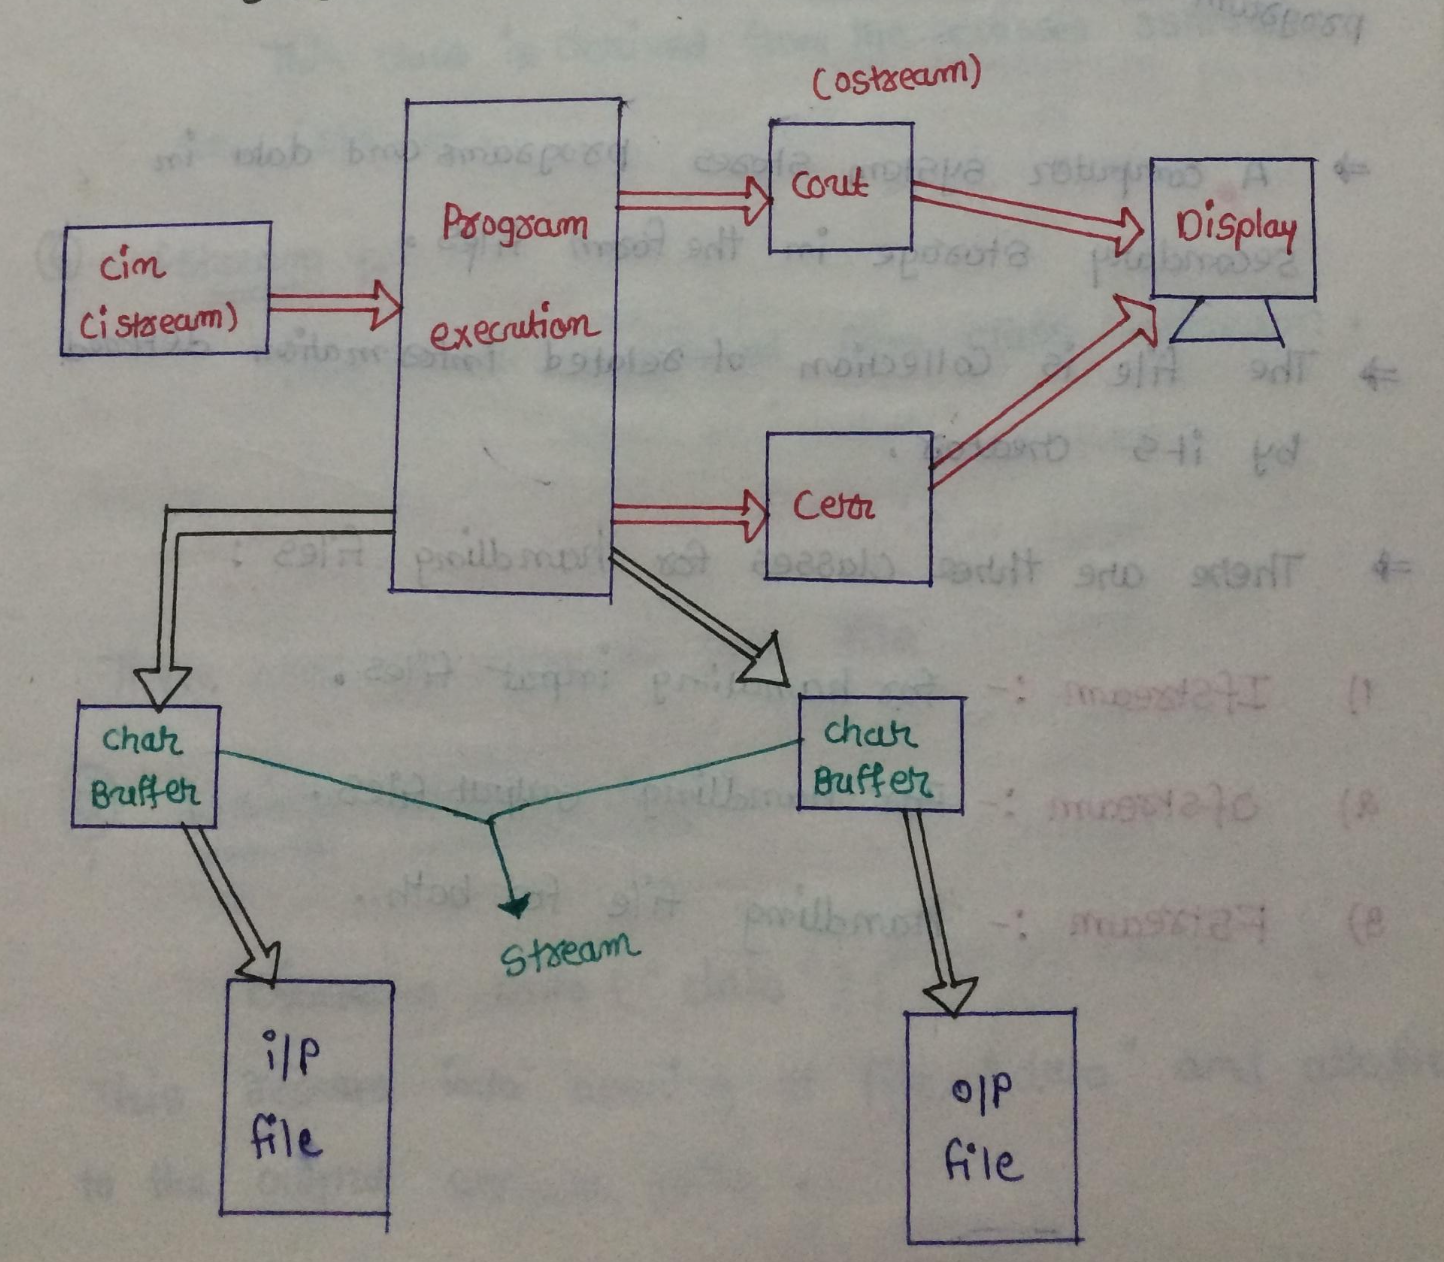 (ostream)
cin
(istream)
Program
execution
Cout
Display
Cerr
Char
Buffer
Char
Buffer
Stream
i/P
file
o/P
file